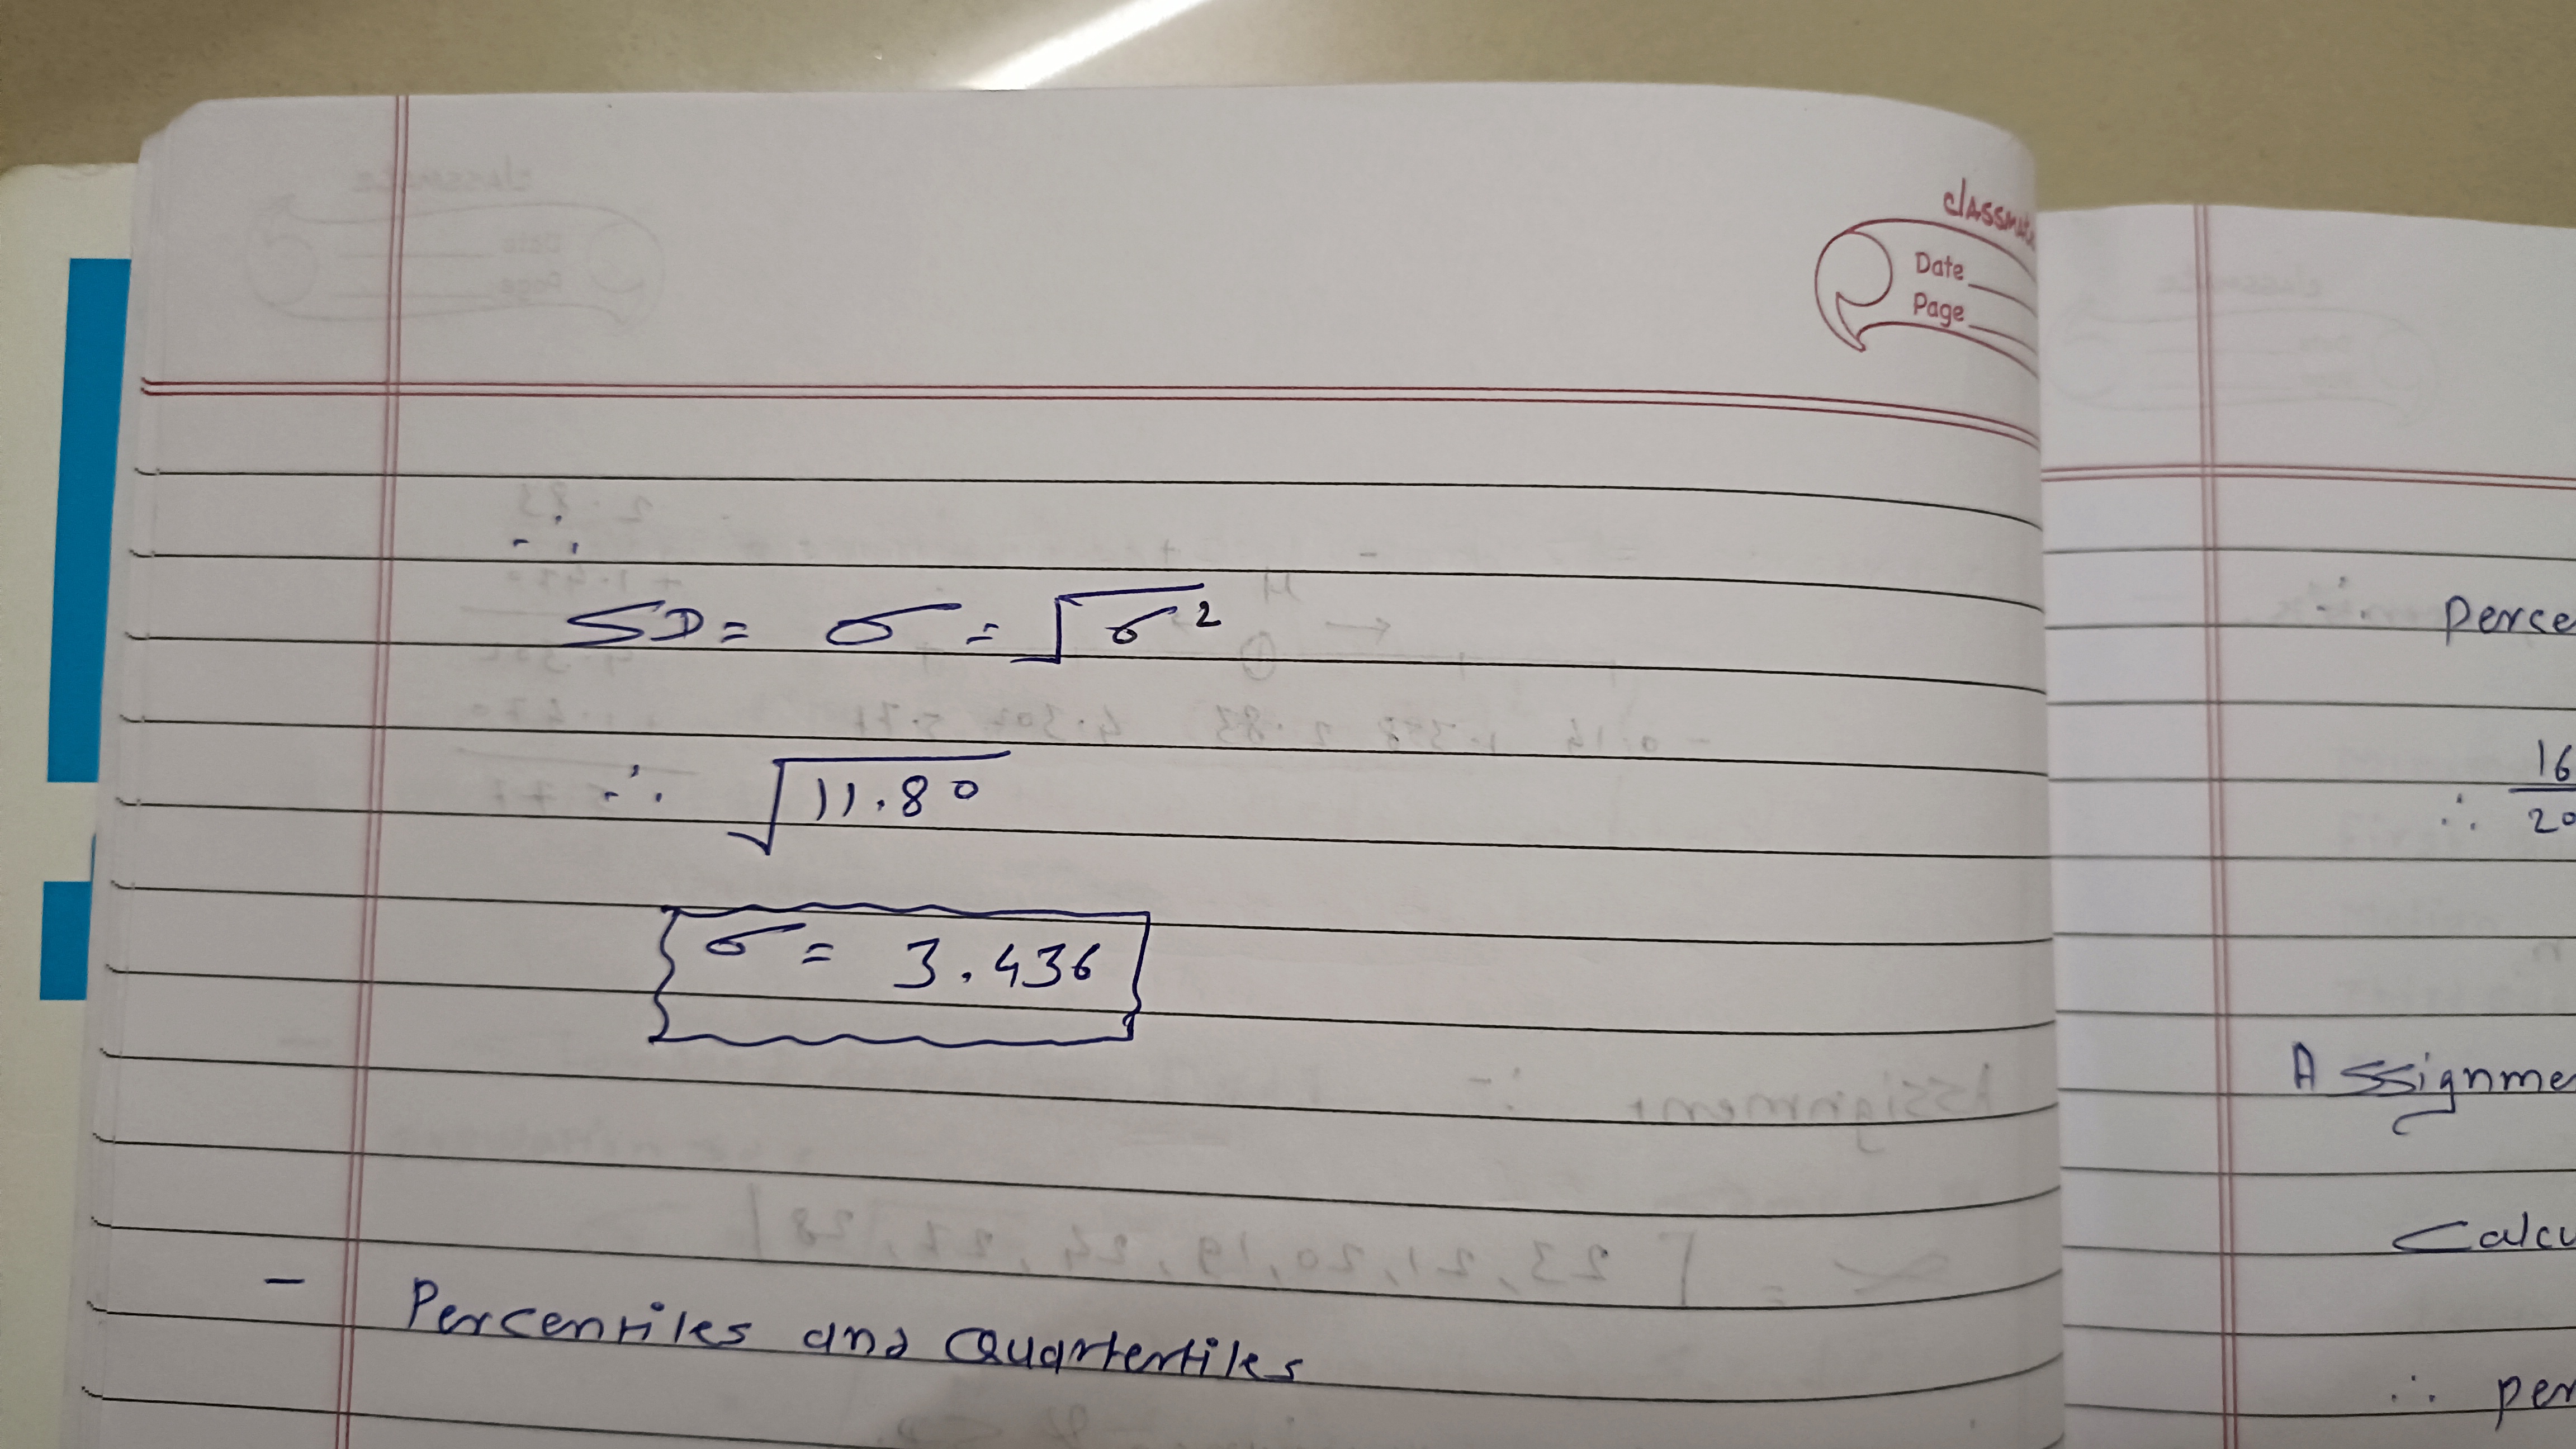 classmate
Date
Page
∴
SD = σ = √σ²
∴ √11.80
σ = 3.436
- Percentiles and Quartertiles
perce
∴ 16
20
Assignme
Calcu
∴ per